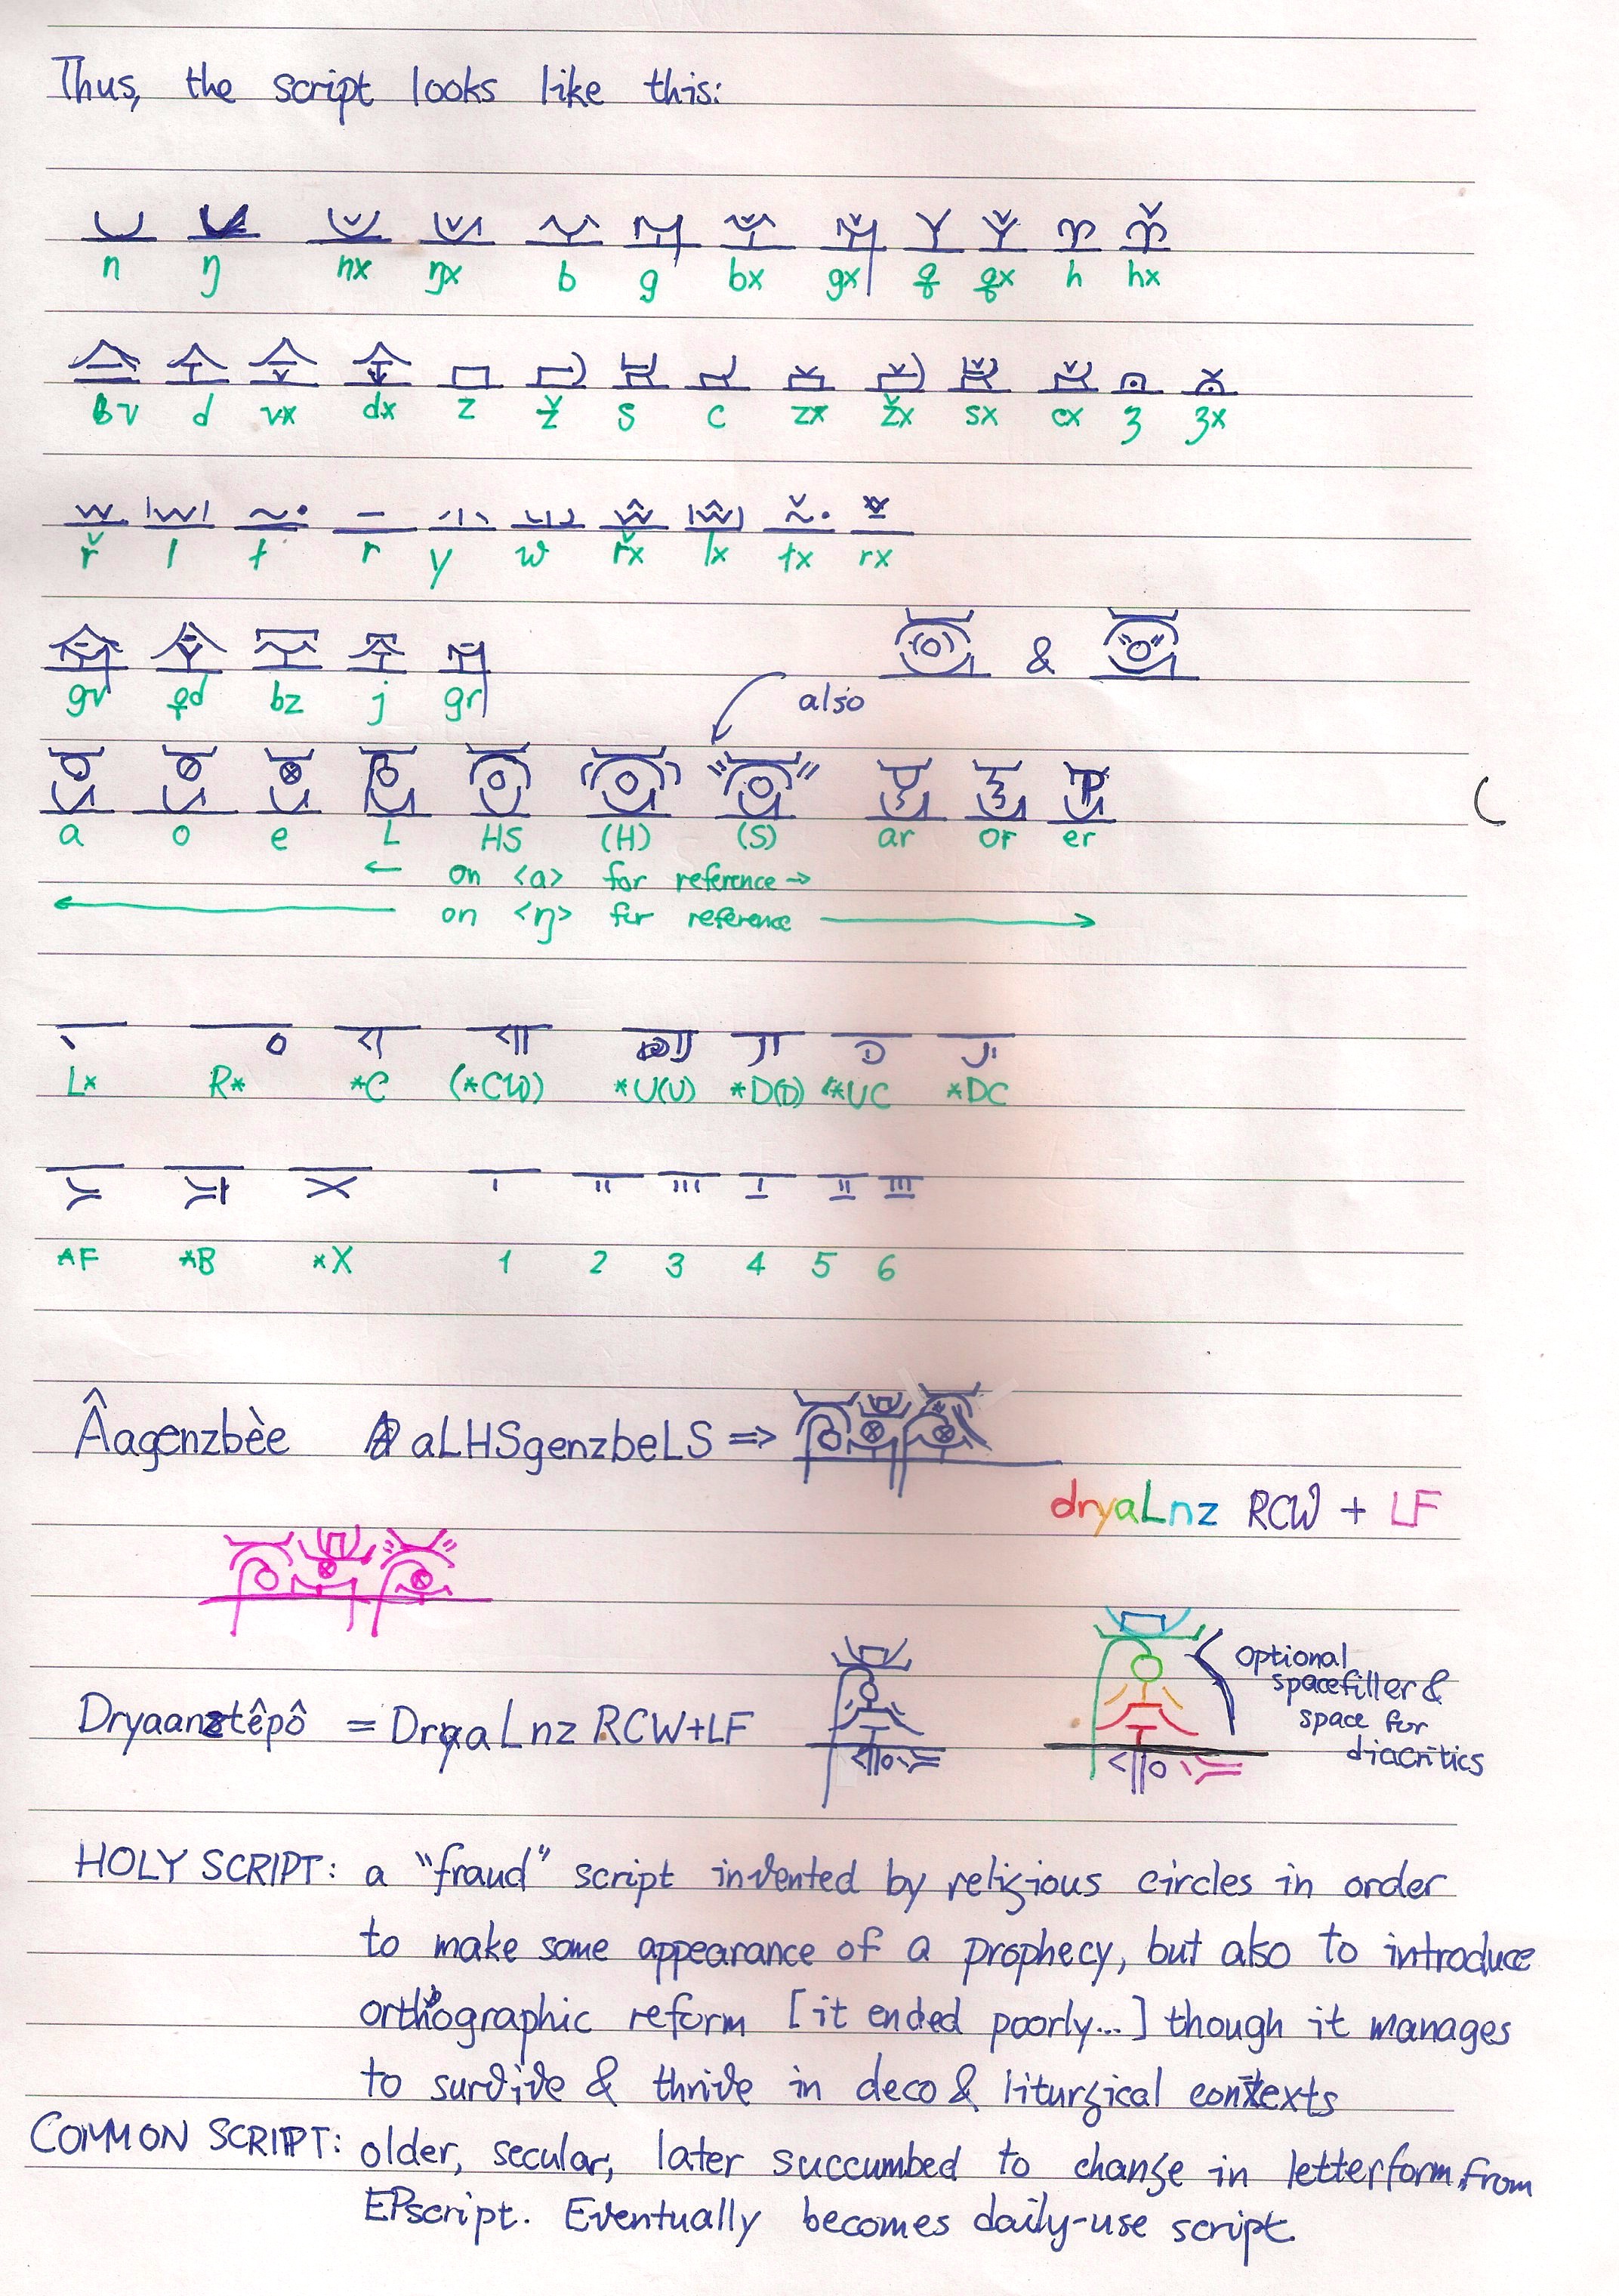 Thus, the script looks like this:
n ŋ nx ŋx b g bx gx q qx h hx
v d vx dx z ž s c zx žx sx cx ʒ ʒx
ř l t r y w řx lx tx rx
gv qd bz j gr &
also
a o e L HS (H) (S) ar or er
← on <a> for reference →
on <ŋ> for reference
L* R* *C (*CW) *U(U) *D(D) *UC *DC
*F *B *X 1 2 3 4 5 6
Âagenzbèe aLHSgenzbeLS =>
dryaLnz RCW + LF
Optional
spacefiller &
space for
diacritics
Dryaanztêpô = DryaLnz RCW+LF
HOLY SCRIPT: a "fraud" script invented by religious circles in order
to make some appearance of a prophecy, but also to introduce
orthographic reform [it ended poorly...] though it manages
to survive & thrive in deco & liturgical contexts
COMMON SCRIPT: older, secular, later succumbed to change in letterform from
EPscript. Eventually becomes daily-use script.